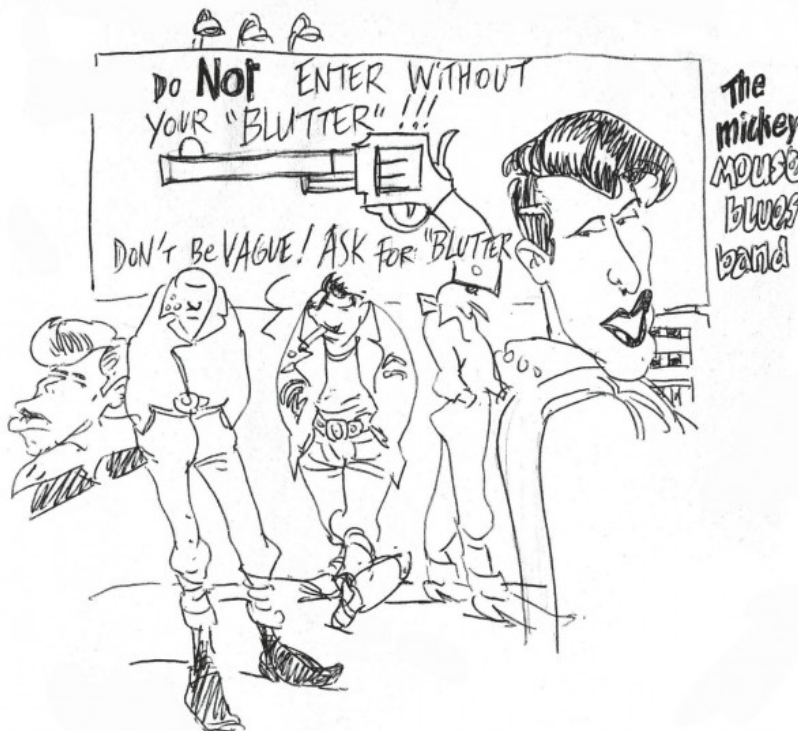 Do Not ENTER WiTHOUT
YOUR "BLUTTER" !!!
DON'T Be VAGUE! ASK FOR "BLUTTER
The
mickey
MOUSE
blues
band